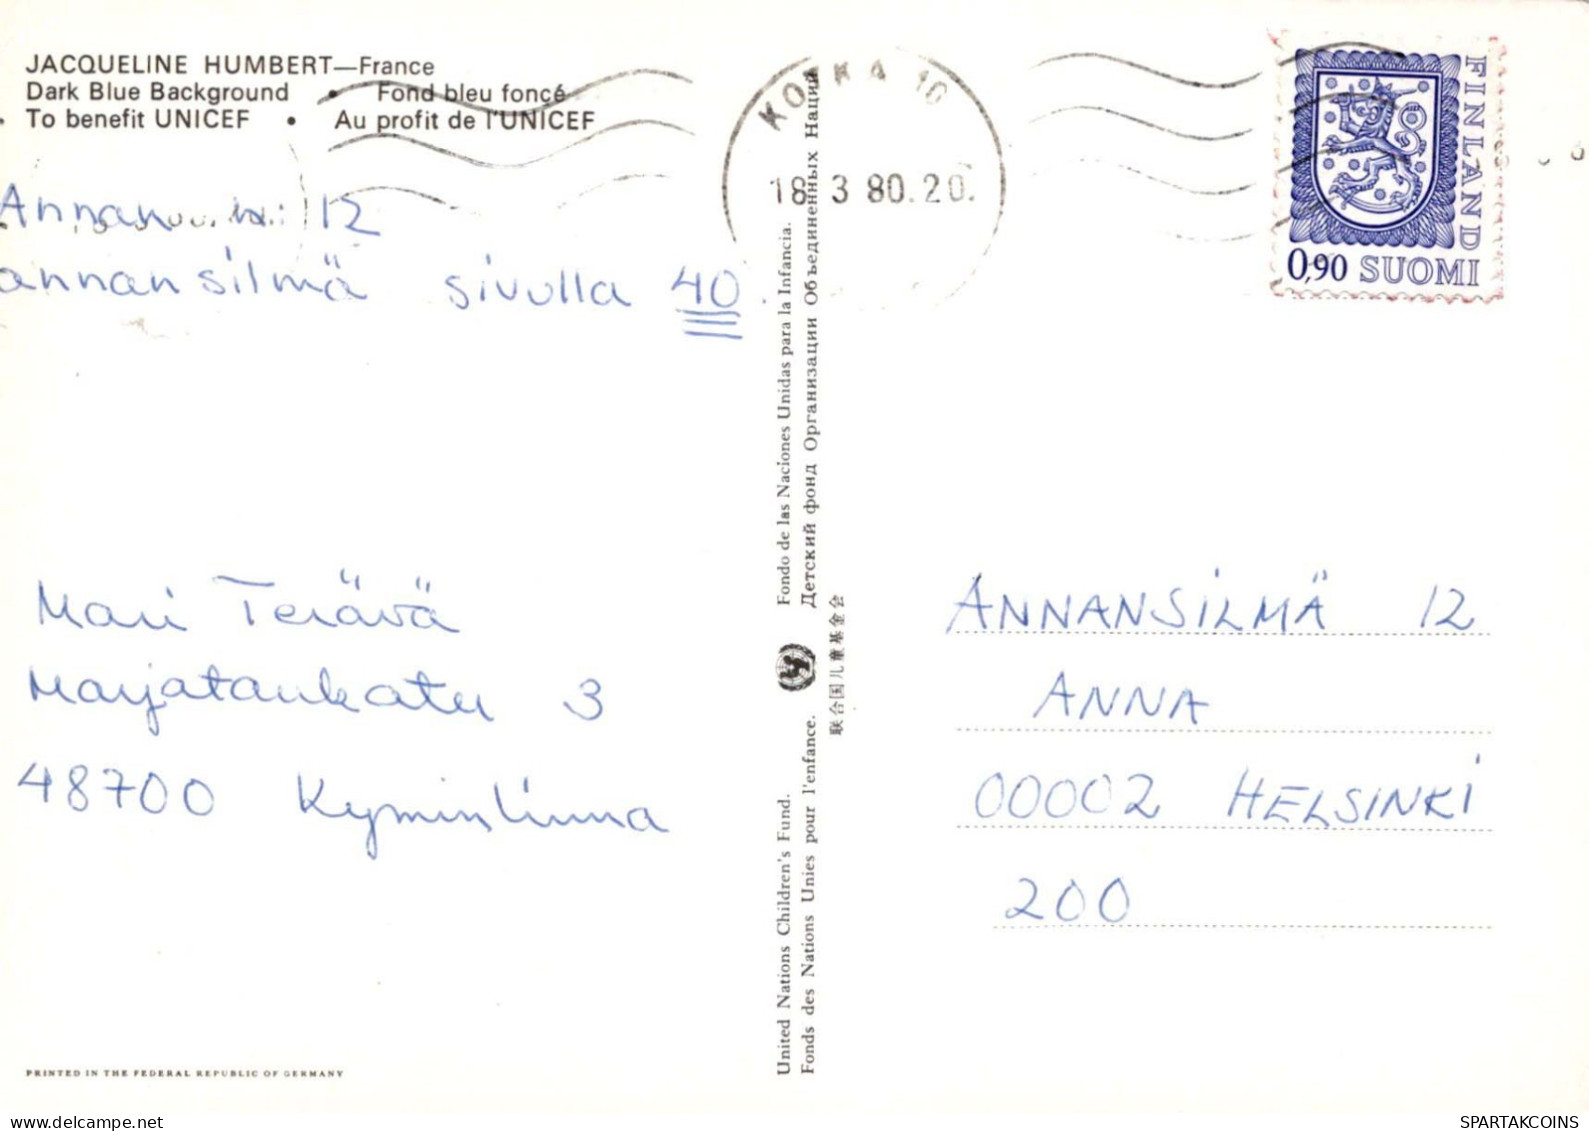 JACQUELINE HUMBERT—France
Dark Blue Background • Fond bleu foncé
• To benefit UNICEF • Au profit de l'UNICEF
Annan n: 12
annansilmä sivulla 40.
Mari Terävä
Marjatankatu 3
48700 Kyminlinna
PRINTED IN THE FEDERAL REPUBLIC OF GERMANY
United Nations Children's Fund. Fondo de las Naciones Unidas para la Infancia.
Fonds des Nations Unies pour l'enfance. Детский фонд Организации Объединенных Наций
联合国儿童基金会
KOTKA 10
18. 3 80.20.
FINLAND
0,90 SUOMI
ANNANSILMÄ 12
ANNA
00002 HELSINKI
200
SPARTAKCOINS